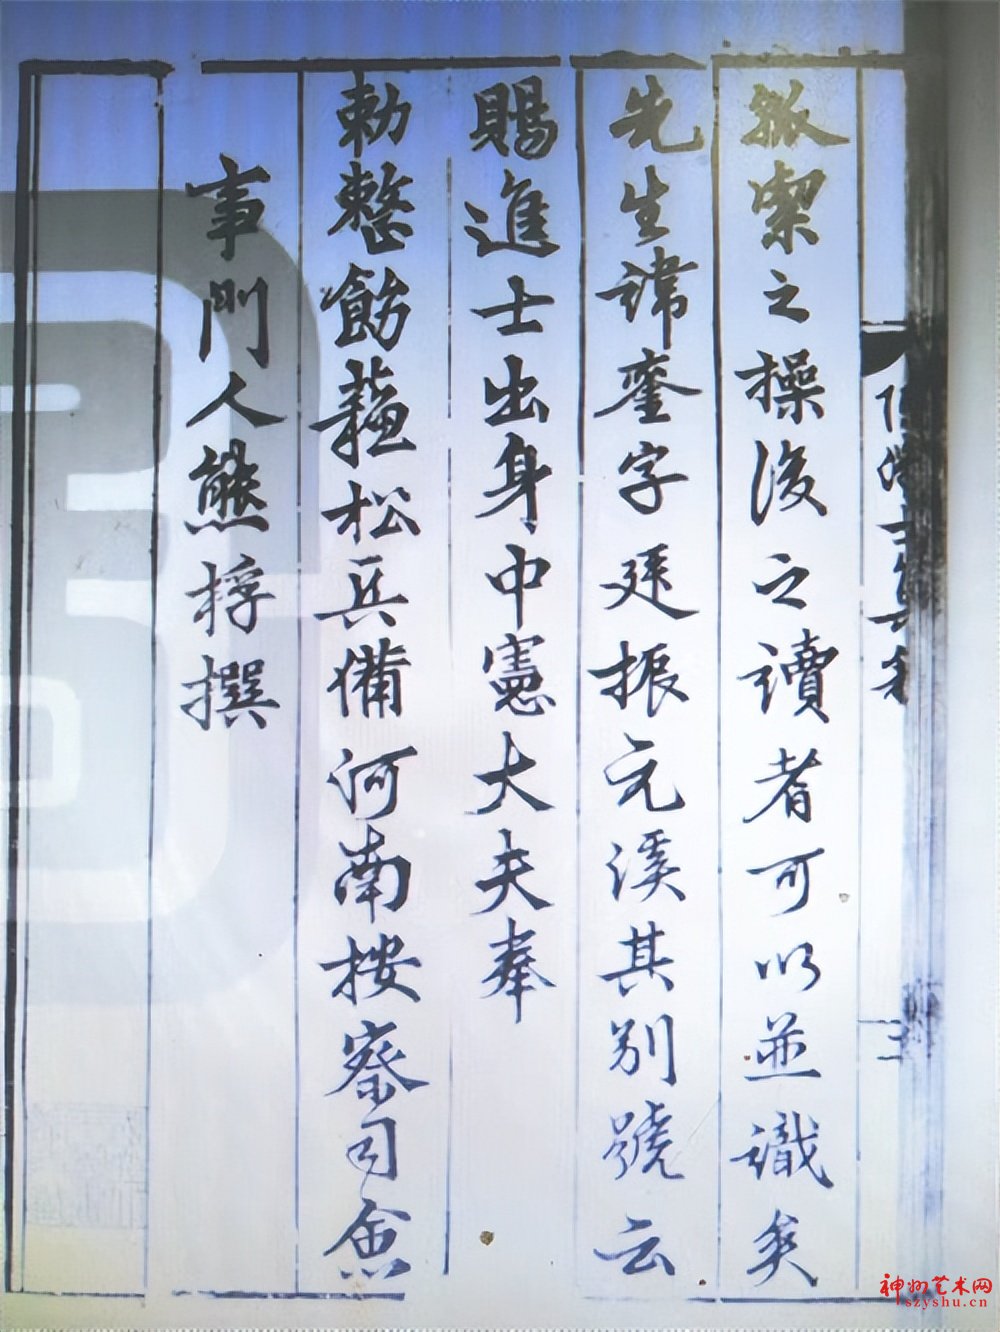 孤潔之操後之讀者可以並識矣
先生諱銮字廷振元溪其別號云
賜進士出身中憲大夫奉
勅整飭蘓松兵備河南按察司僉
事門人熊桴撰
三
神州艺术网
szyshu.cn